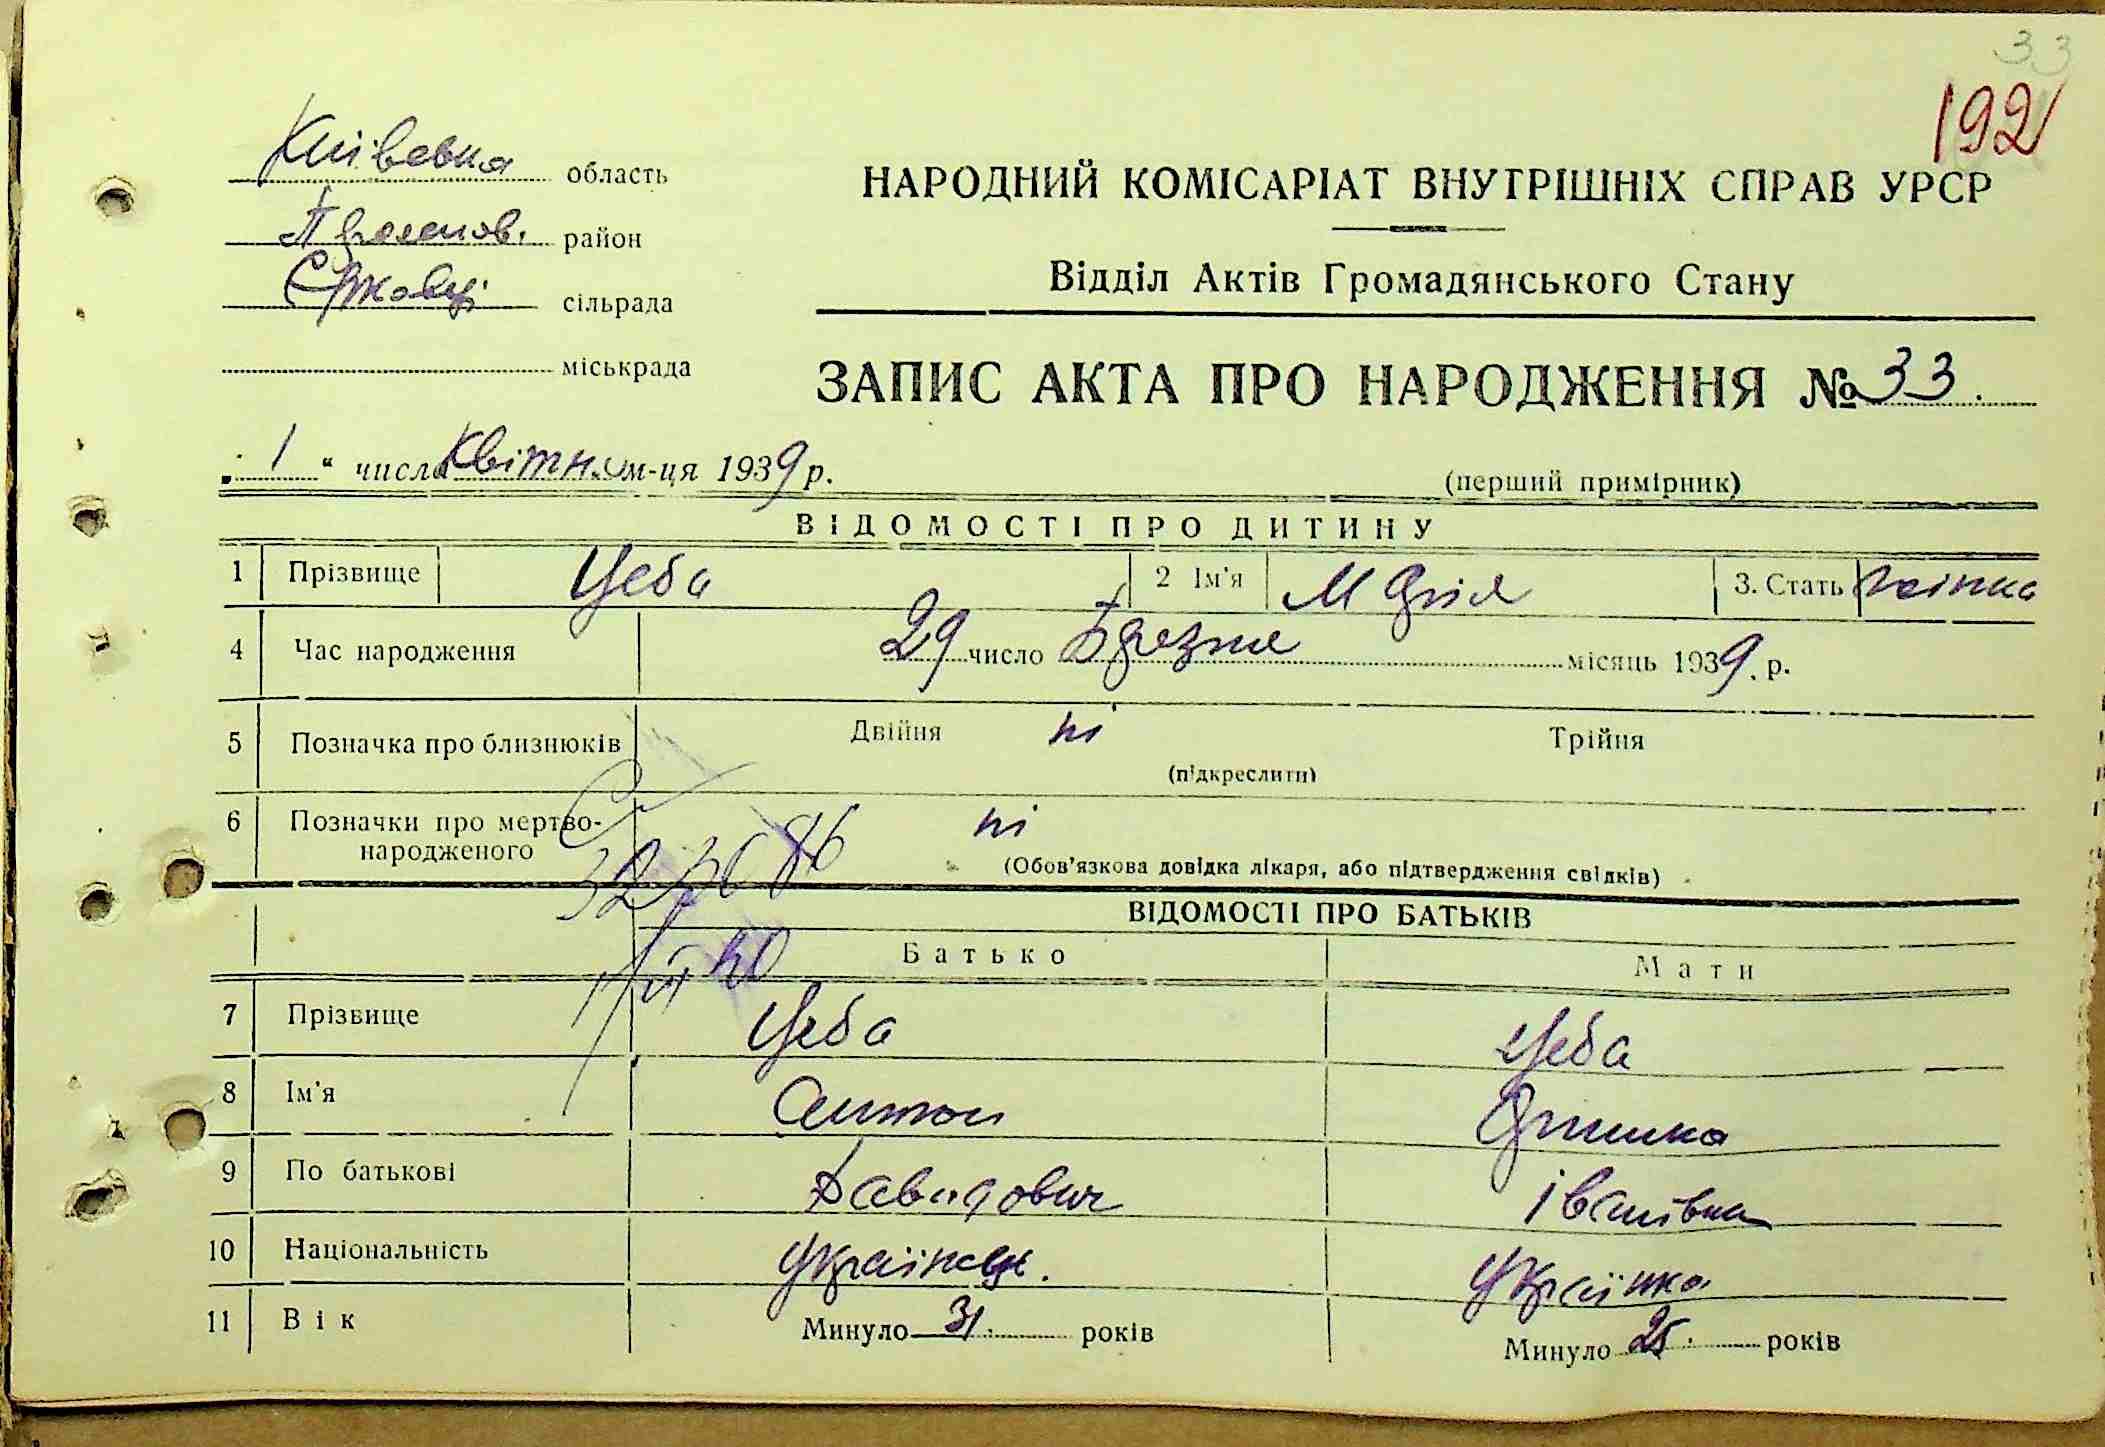 33
192
Київська область
район
Єрковці сільрада
міськрада
НАРОДНИЙ КОМІСАРІАТ ВНУТРІШНІХ СПРАВ УРСР
Відділ Актів Громадянського Стану
ЗАПИС АКТА ПРО НАРОДЖЕННЯ № 33.
„1“ числа Квітня м-ця 1939 р.
(перший примірник)
ВІДОМОСТІ ПРО ДИТИНУ
1 Прізвище Цеба 2 Ім'я Марія 3. Стать жінка
4 Час народження 29 число Березня місяць 1939. р.
5 Позначка про близнюків Двійня ні Трійня
(підкреслити)
6 Позначки про мертво-
народженого ні
(Обов'язкова довідка лікаря, або підтвердження свідків)
ВІДОМОСТІ ПРО БАТЬКІВ
Батько Мати
7 Прізвище Цеба Цеба
8 Ім'я Антон Оришка
9 По батькові Давидович Іванівна
10 Національність Українець. Українка
11 Вік Минуло 31. років Минуло 25. років